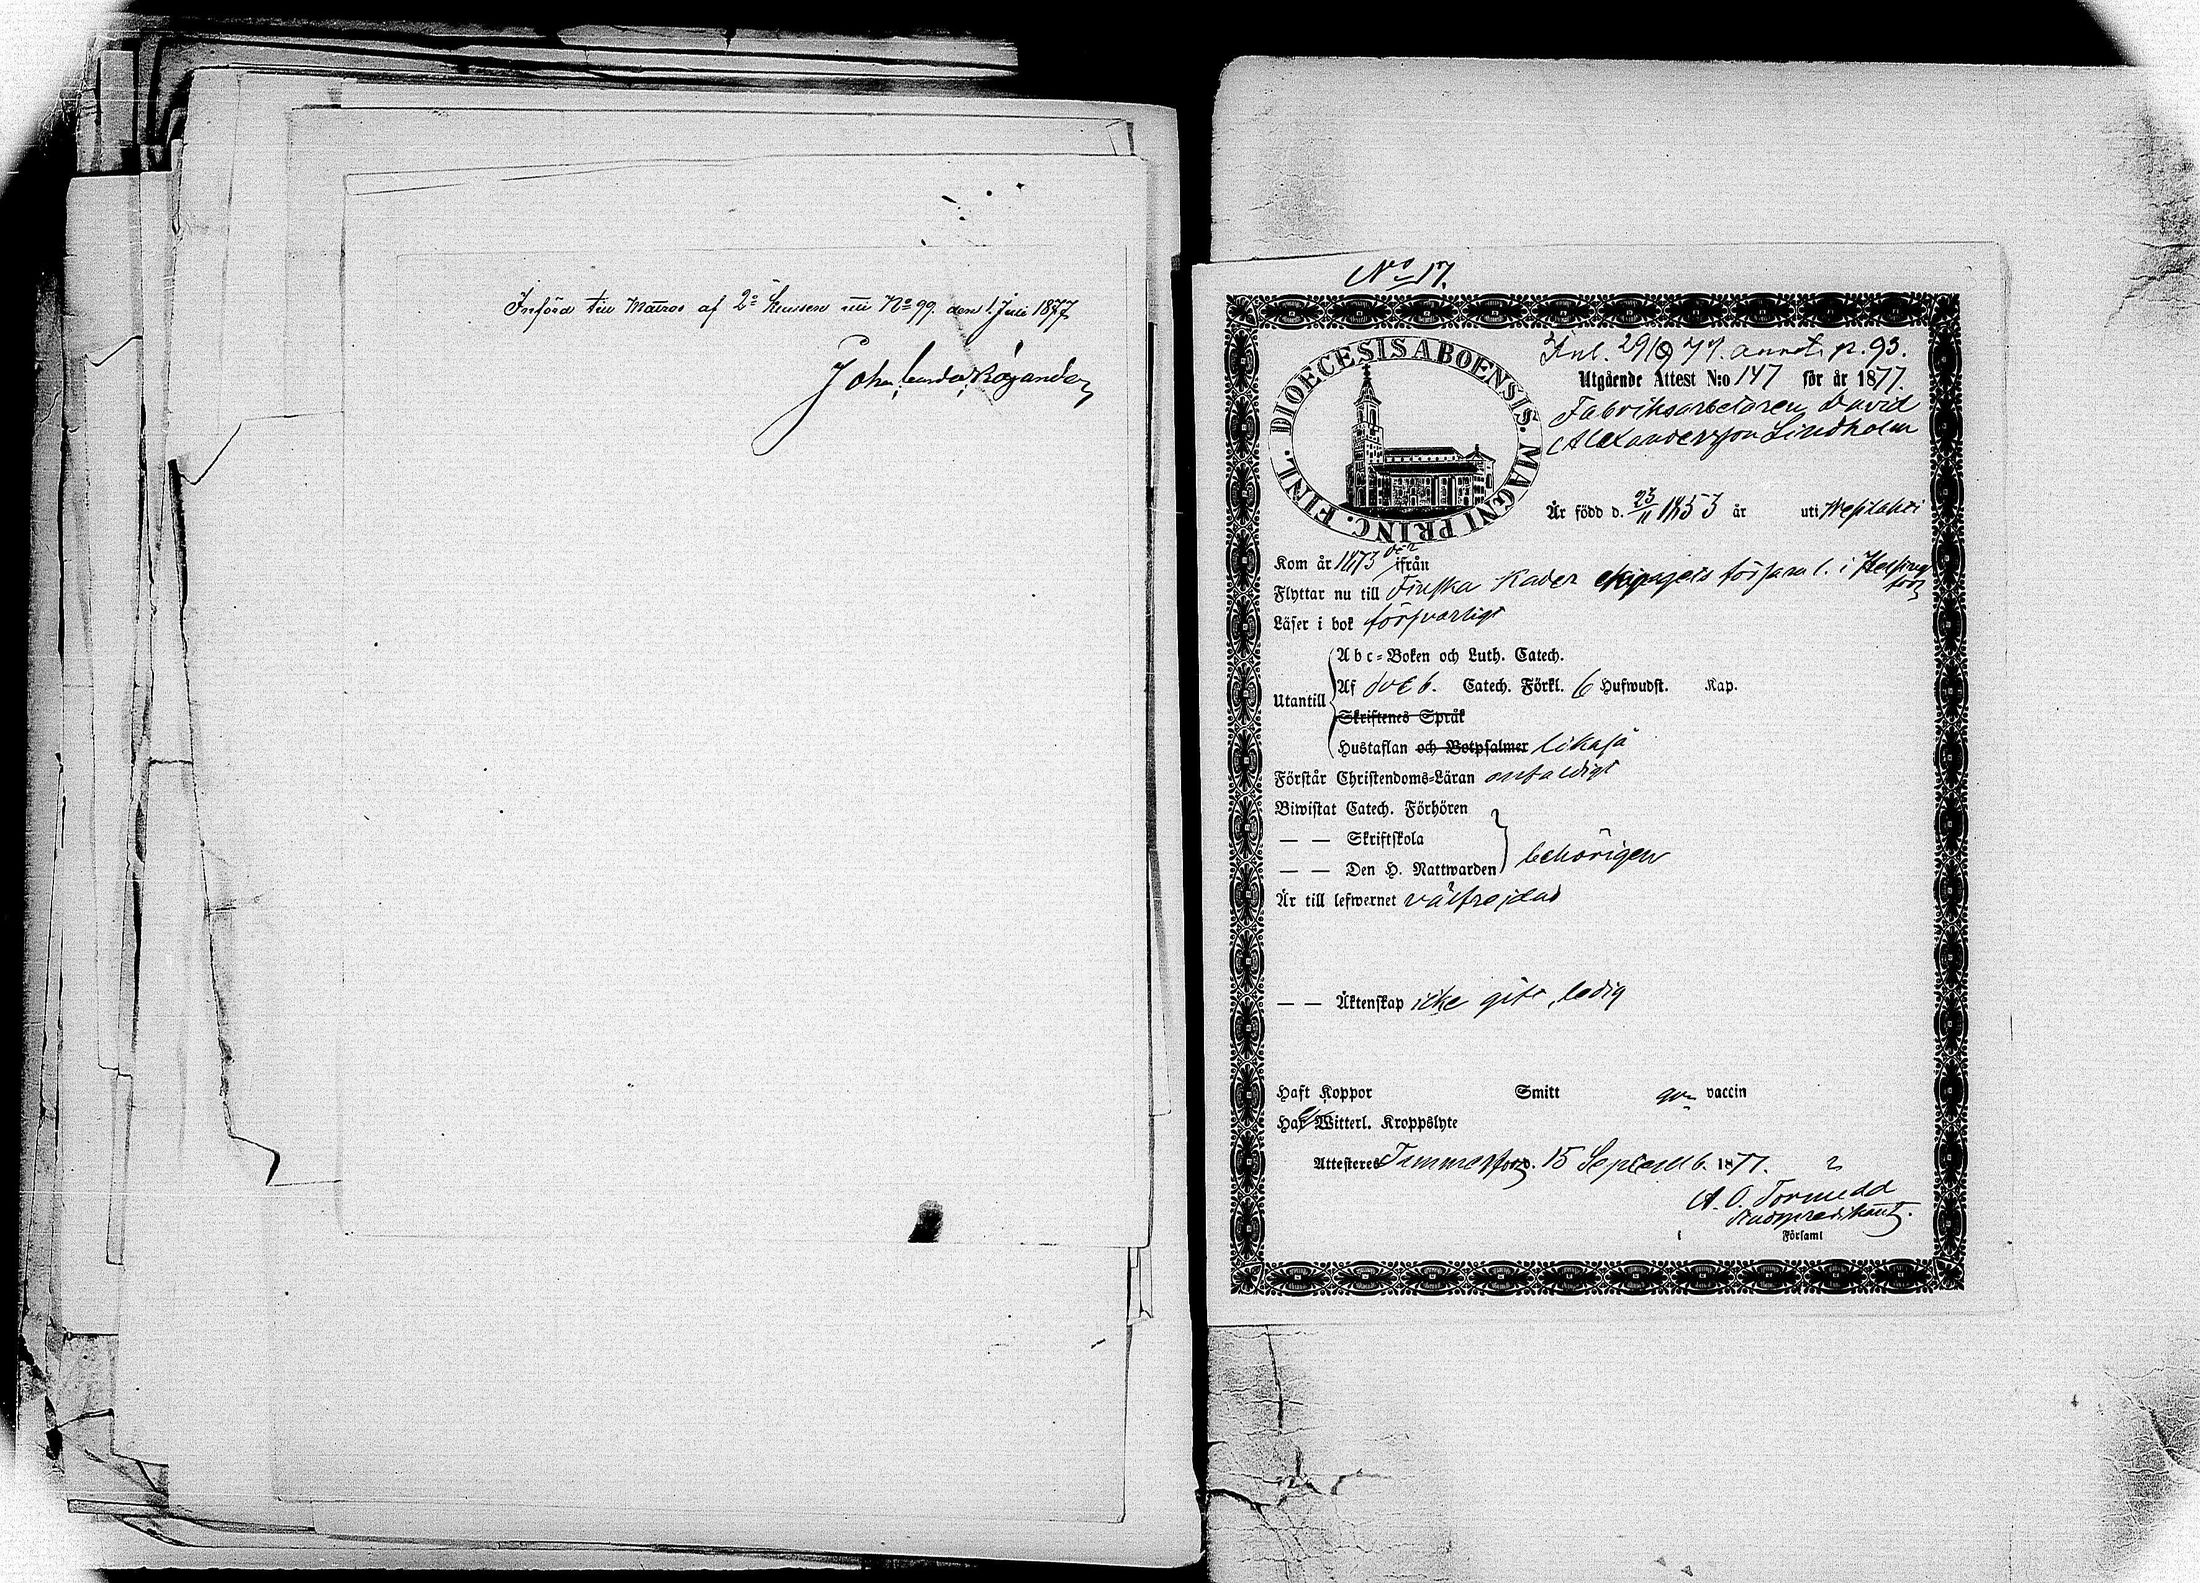 Införd till Matros af 2ª klassen till No 99. den 1 Juli 1877
Joh
No 17.
Inl. 29/9 77. annot. p. 93.
DIOECESIS ABOENSIS. MAGNI PRINC. FINL.
Utgående Attest N:o 147 för år 1877.
Fabriksarbetaren David
Alexandersson Lindholm
Är född d. 23/11 1853 år uti Wesilahti
Kom år 1873 ifrån
Flyttar nu till Finska Kader ekipagets församl. i Helsingfors
Läser i bok försvarligt
Utantill
Abc-Boken och Luth. Catech.
Af Catech. Förkl. 6 Hufwudst. Kap.
Skriftenes Språk
Hustaflan och Botpsalmer likaså
Förstår Christendoms-Läran enfaldigt
Biwistat Catech. Förhören
— — Skriftskola
— — Den H. Nattwarden behörigen
Är till lefwernet välfrejdad
— — Äktenskap icke gift, ledig
Haft Koppor Smitt vaccin
Haf Witterl. Kroppslyte
Attesteres Tammerfors d. 15 Septemb. 1877.
A. O. Tornudd
i Församl